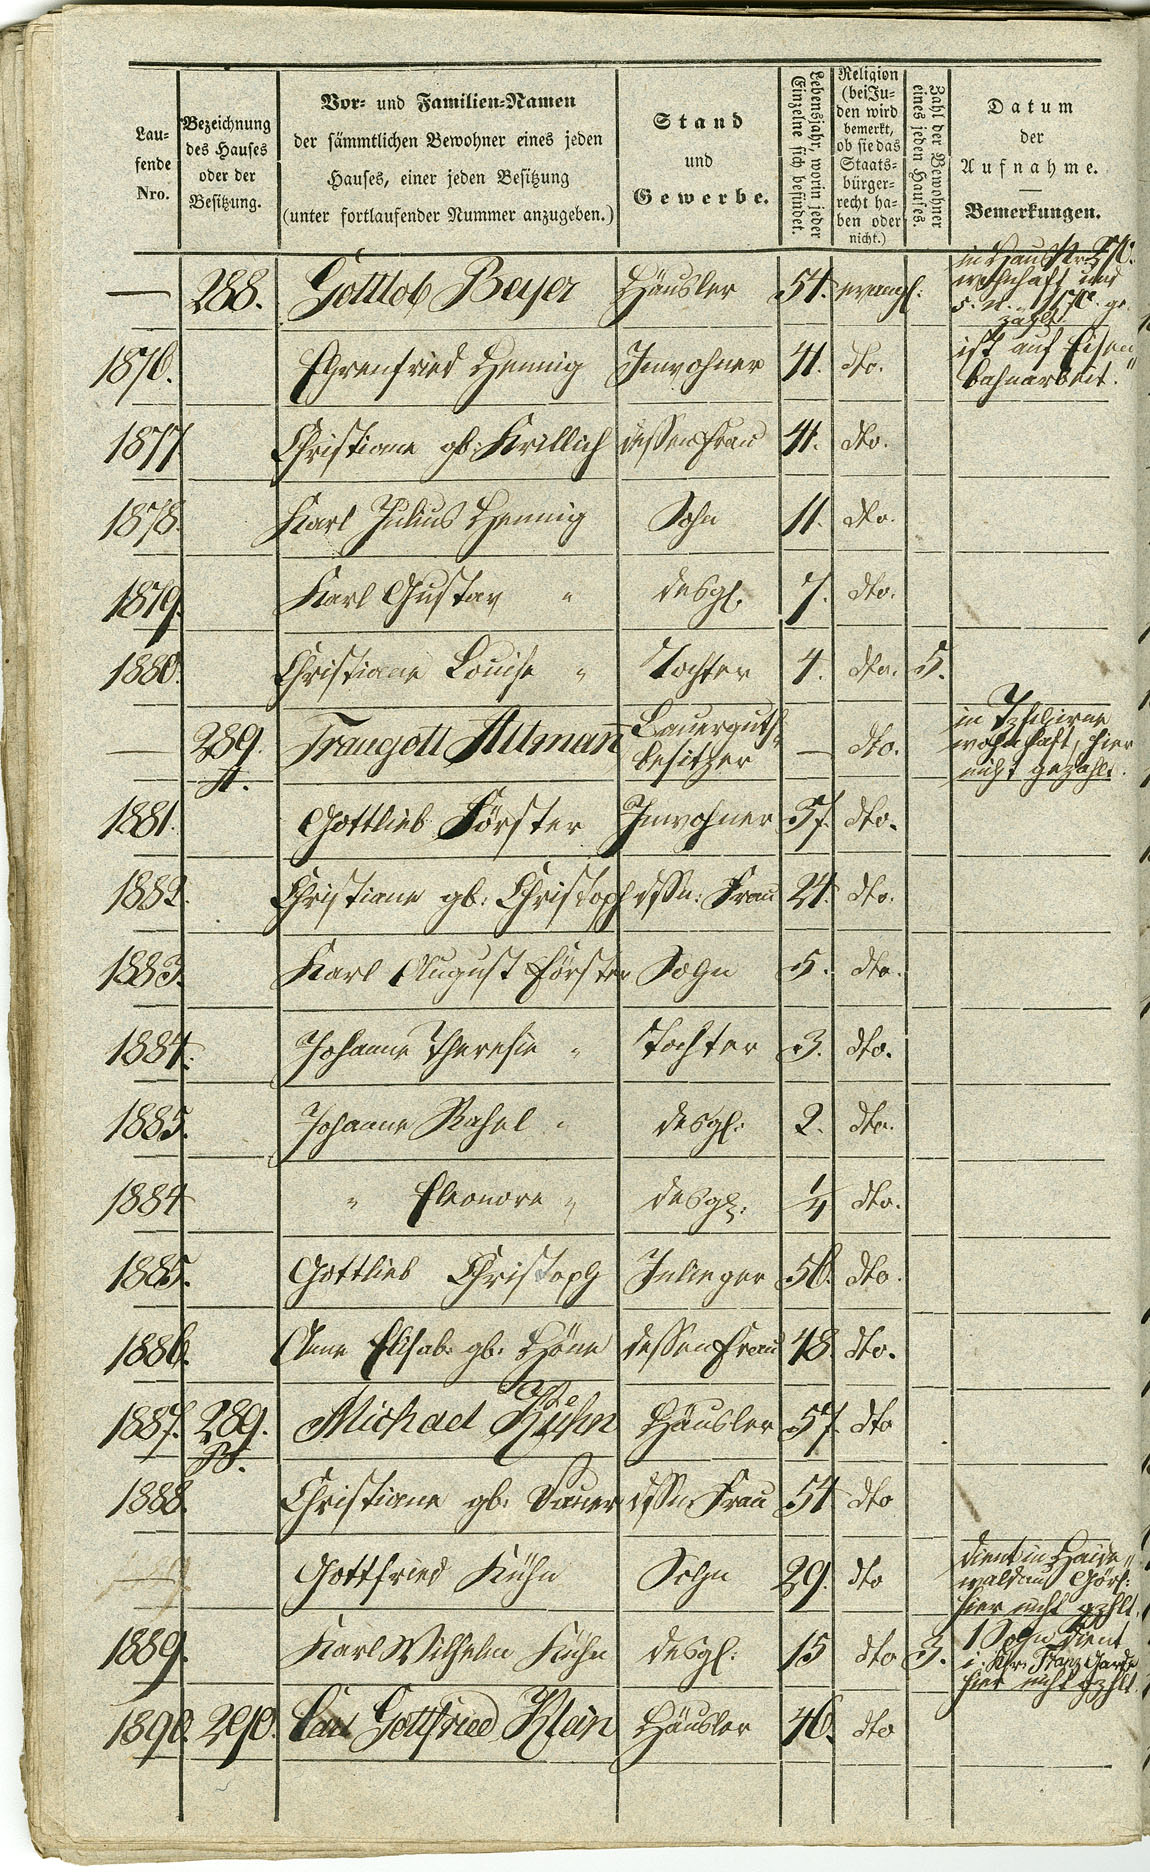 Lau-
fende
Nro.
Bezeichnung
des Hauses
oder der
Besitzung.
Vor- und Familien-Namen
der sämmtlichen Bewohner eines jeden
Hauses, einer jeden Besitzung
(unter fortlaufender Nummer anzugeben.)
Stand
und
Gewerbe.
Lebensjahr, worin jeder
Einzelne sich befindet.
Religion
(bei Ju-
den wird
bemerkt,
ob sie das
Staats-
bürger-
recht ha-
ben oder
nicht.)
Zahl der Bewohner
eines jeden Hauses.
Datum
der
Aufnahme.
Bemerkungen.
— 288. Gottlob Beyer Häusler 51. evangl. in Haus Nr
wohnhaft und
zählt
1876. Ehrenfried Hennig Inwohner 41. dto. ist auf Eisen
bahnarbeit."
1877 Christiane gb: Krillich dessen Frau 41. dto.
1878. Karl Julius Hennig Sohn 11. dto.
1879. Karl Gustav " desgl. 7. dto.
1880. Christiane Louise " Tochter 4. dto. 5.
— 289. A. Traugott Altmann Bauerguths
besitzer — dto. in
wohnhaft, hier
nicht gezählt.
1881. Gottlieb Förster Inwohner 37. dto.
1882. Christiane gb: Christoph dssn: Frau 24. dto.
1883. Karl August Förster Sohn 5. dto.
1884. Johanne Theresie " Tochter 3. dto.
1885. Johanne Rahel " desgl: 2. dto.
1884 " Eleonore " desgl: 1/4 dto.
1885. Gottlieb Christoph Inlieger 56. dto.
1886. Anne Elisab: gb: Höne dessen Frau 48. dto.
1887. 289. B. Michael Kühn Häusler 57. dto
1888. Christiane gb: Sauer dssn Frau 54 dto
— Gottfried Kühn Sohn 29. dto dient in Haide"
waldau Görl:
hier nicht gzhlt.
1889. Karl Wilhelm Kühn desgl: 15 dto 3. 1 Sohn dient
i. Franz Garde
hier nicht gzhlt.
1890. 290. Carl Gottfried Klein Häusler 46. dto